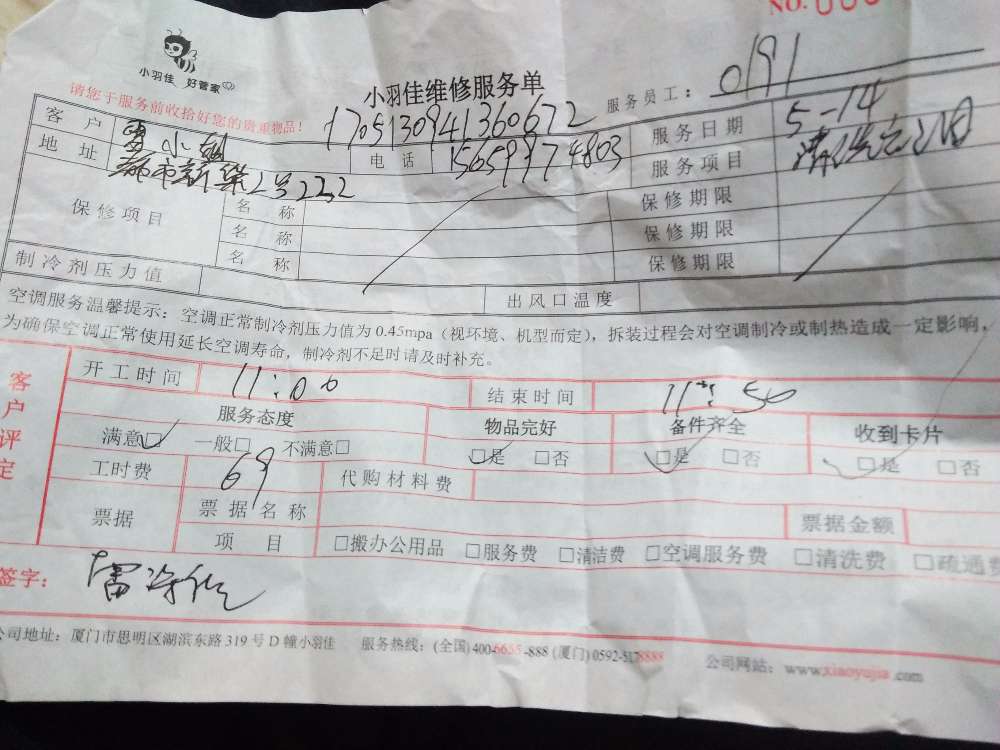 NO.
小羽佳 好管家
小羽佳维修服务单
服务员工： 0191
请您于服务前收拾好您的贵重物品！
1705130941360672
客户 雷小姐
服务日期 5-14
地址 都市新 2号222
电话 15659974803
服务项目 清洗
保修项目
名称 保修期限
名称 保修期限
名称 保修期限
制冷剂压力值 出风口温度
空调服务温馨提示：空调正常制冷剂压力值为0.45mpa（视环境、机型而定），拆装过程会对空调制冷或制热造成一定影响，
为确保空调正常使用延长空调寿命，制冷剂不足时请及时补充。
客户评定
开工时间 11:00 结束时间 11:50
服务态度 物品完好 备件齐全 收到卡片
满意☑ 一般□ 不满意□ ☑是 □否 ☑是 □否 ☑是 □否
工时费 69 代购材料费
票据 票据名称 票据金额
项目 □搬办公用品 □服务费 □清洁费 □空调服务费 □清洗费 □疏通费
签字： 雷
公司地址：厦门市思明区湖滨东路319号D幢小羽佳 服务热线：(全国)400-6655-888 (厦门)0592-5178888 公司网站：www.xiaoyujia.com